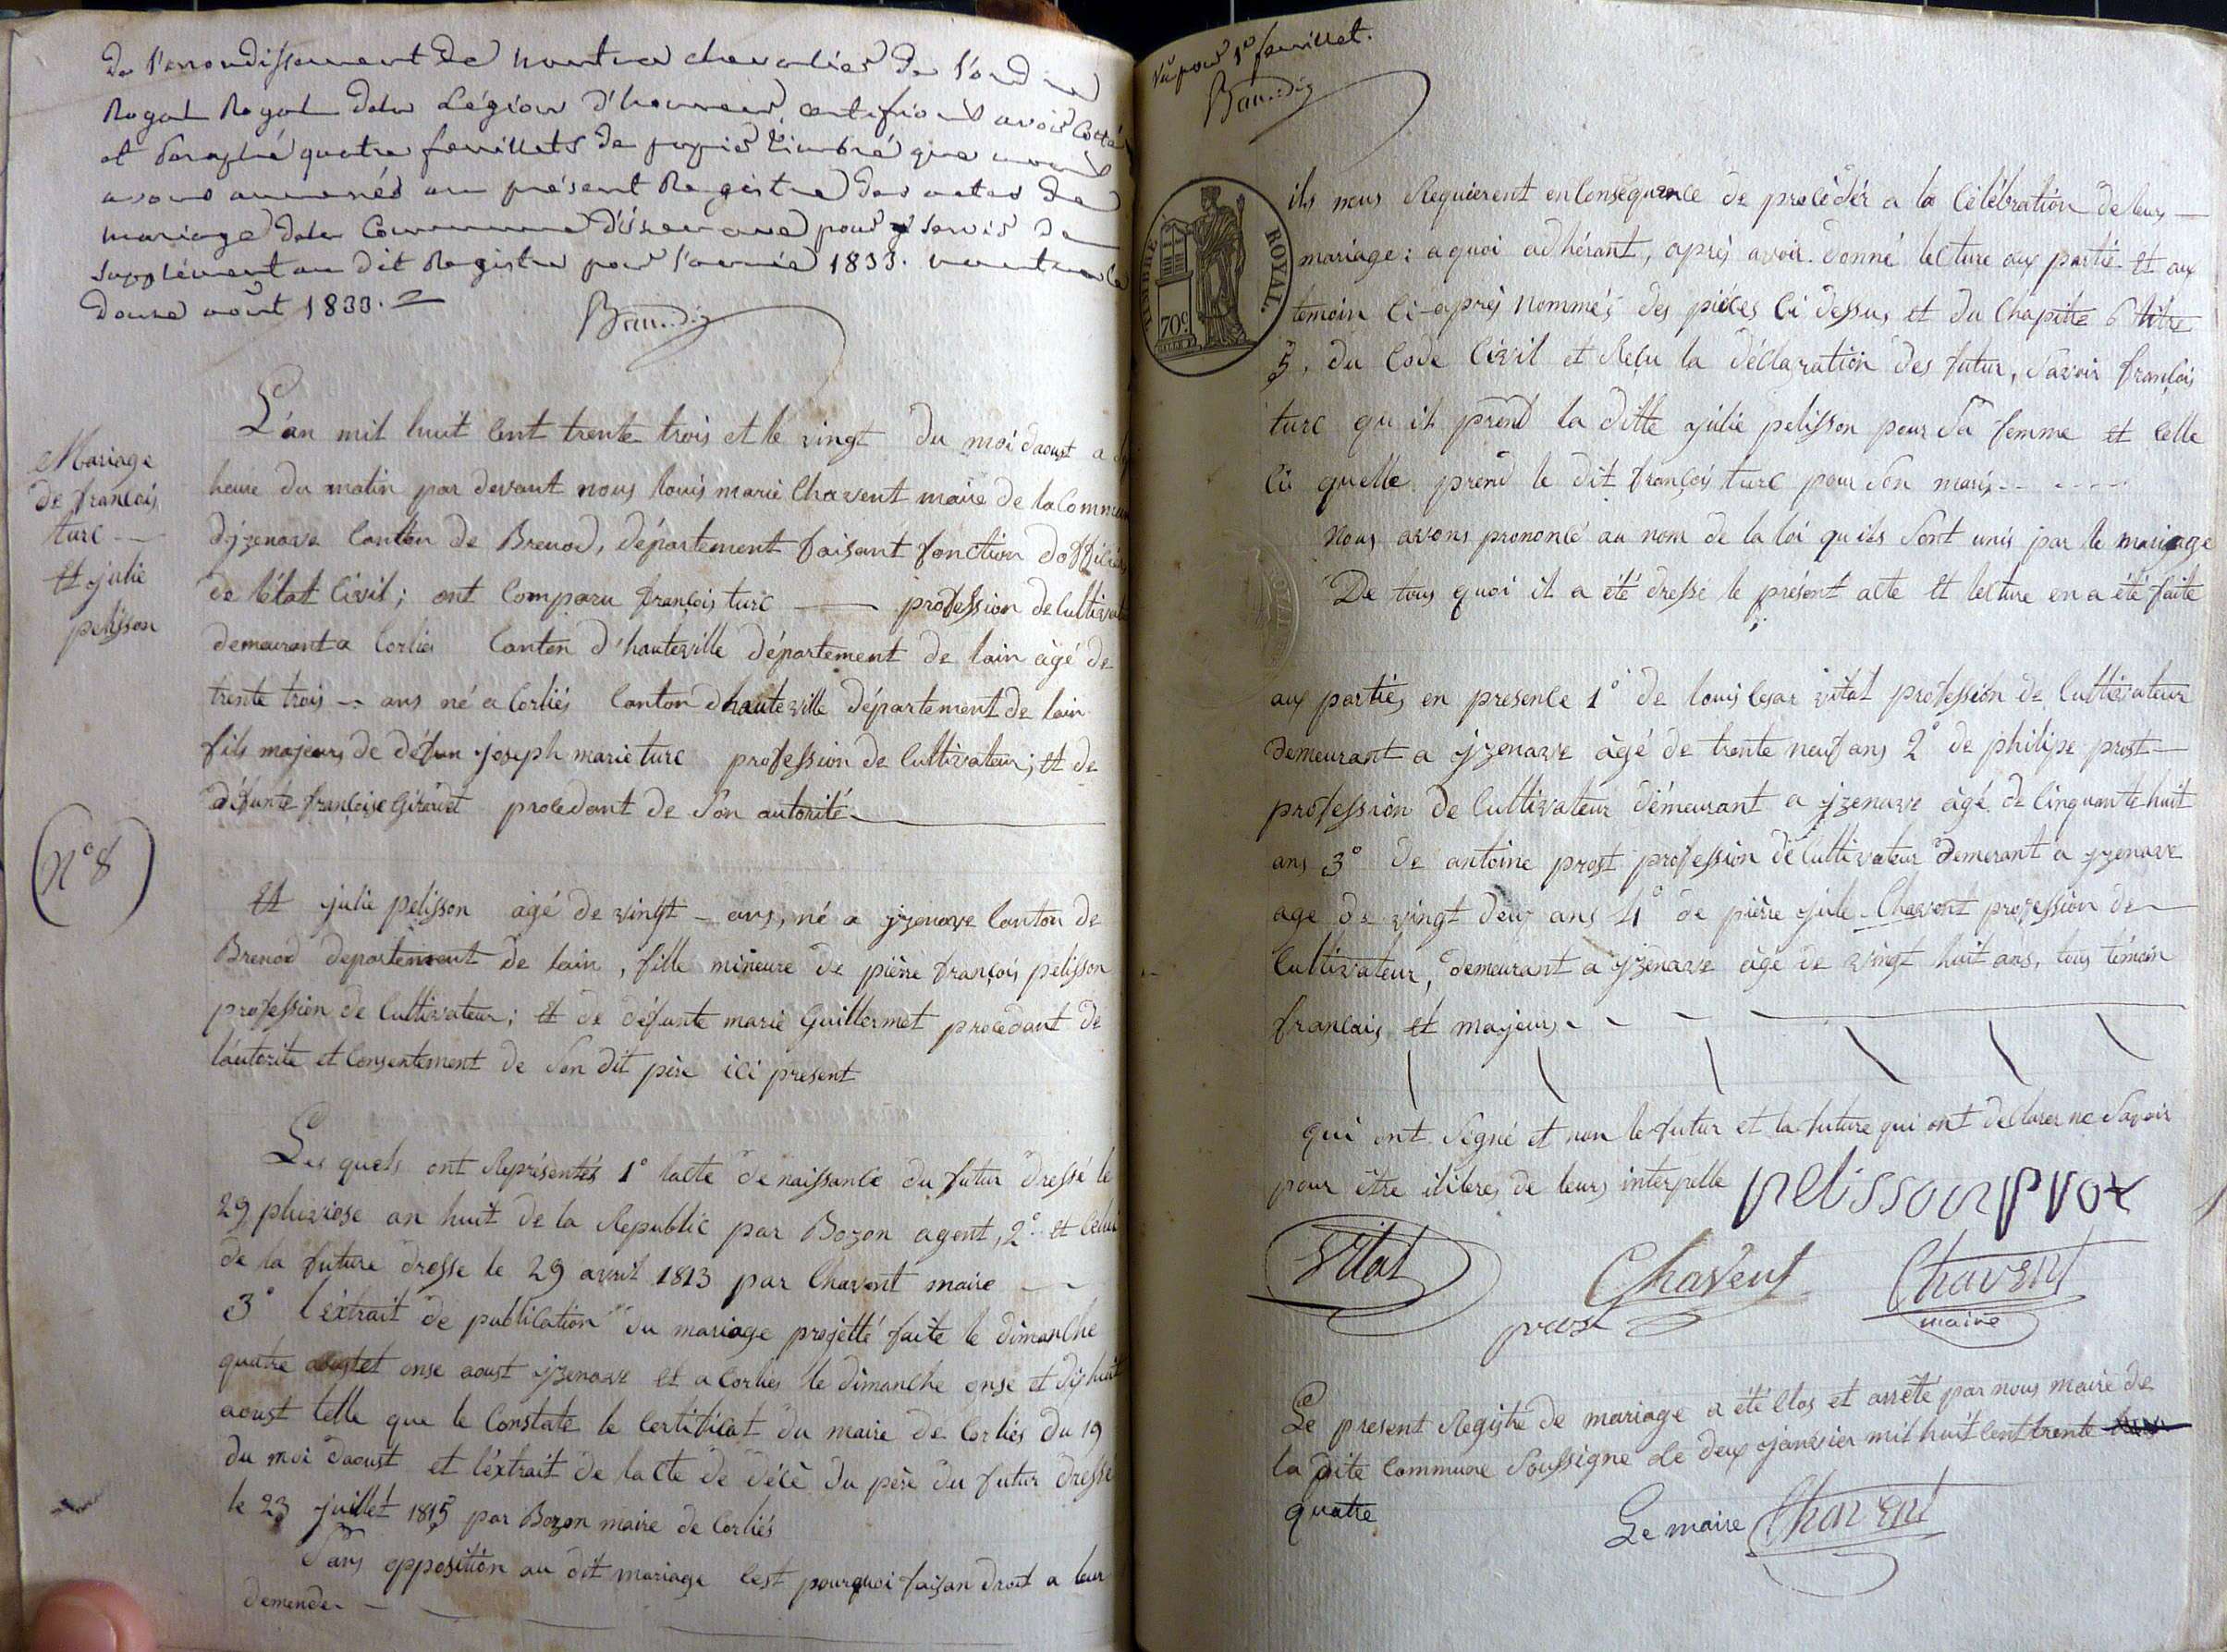 de l'arrondissement de nantua chevalier de l'ordre
Royal Royal dela Légion d'honneur, certifions avoir Cotté
et Paraphé quatre feuillets de papier timbré que nous
avons annexés au présent Registre des actes de
mariage dela Commune d'izenave pour y servir de
supplément au dit Registre pour l'année 1833. nantua le
douze août 1833.
Baudin
Mariage
de françois
turc
et julie
pelisson
N° 8
L'an mil huit cent trente trois et le vingt du moi daoust a
heure du matin par devant nous louis marie Chavent maire de la Commune
dizenave Canton de Brenod, département faisant fonction dofficier
de l'état Civil; ont Comparu françois turc profession de Cultivat
demeurant a Corlier Canton d'hauteville département de lain âgé de
trente trois ans né a Corliés Canton dhauteville département de lain
fils majeurs de défun joseph marie turc profession de Cultivateur; et de
défunte françoise Girardet procedant de son autorité
et julie pelisson agé de vingt ans, né a jzenave Canton de
Brenod departement de lain, fille mineure de pièrre françois pelisson
profession de Cultivateur; et de défunte marie Guillermet procedant de
lautorite et Consentement de son dit père ici présent
Les quels ont Représentés 1° lacte de naissance du futur dressé le
29 pluviose an huit de la Republic par Bozon agent, 2° et Celui
de la future dresse le 29 avril 1813 par Chavent maire
3° l'extrait de publication du mariage projetté faite le dimanche
quatre aoust et onse aoust jzenave et a Corlies le dimanche onse et dix huit
aoust telle que le Constate le Certificat du maire de Corliés du 19
du moi daoust et l'éxtrait de lacte de décè du père du futur dresse
le 23 juillet 1815 par Bozon maire de Corliés
Sans opposition au dit mariage Cest pourquoi faisan droit a leur
demende
Vu pour 1er feuillet.
Baudin
TIMBRE ROYAL.
70c
ils nous Requierent en Conséquence de procédér a la Célébration de leurs
mariage: a quoi adhérant, aprés avoir donné lecture aux partié et aux
temoin Ci-aprés nommés des piéces Ci dessus et du Chapitre 6 titre
5, du Code Civil et Reçu la déclaration des futur, Savoir françois
turc qu il prend la ditte julie pelisson pour Sa femme et Celle
Ci quelle prend le dit françois turc pour Son maris
Nous avons prononcé au nom de la loi quils Sont unis par le mariage
De tous quoi il a été dressé le présent acte et lecture en a été faite
aux partiés en presence 1° de louis Cesar vital profession de Cultivateur
demeurant a jzenave àgé de trente neuf ans 2° de philipe prost
profession de Cultivateur démeurant a jzenave àgé de Cinquante huit
ans 3° de antoine prost profession de Cultivateur demerant a jzenave
age de vingt deux ans 4° de pièrre jule Chavent profession de
Cultivateur, demeurant a jzenave àgé de vingt huit ans, tous témoin
français et majeurs
qui ont Signé et non le futur et la future qui ont declarer ne Savoir
pour être iliteres de leurs interpelle pelisson prot
Vital Chavent Chavent
prost maire
Le present Registre de mariage a été Clos et arrêté par nous maire de
la dite Commune Soussigne Le deux janvier mil huit Cent trente
quatre
Le maire Chavent